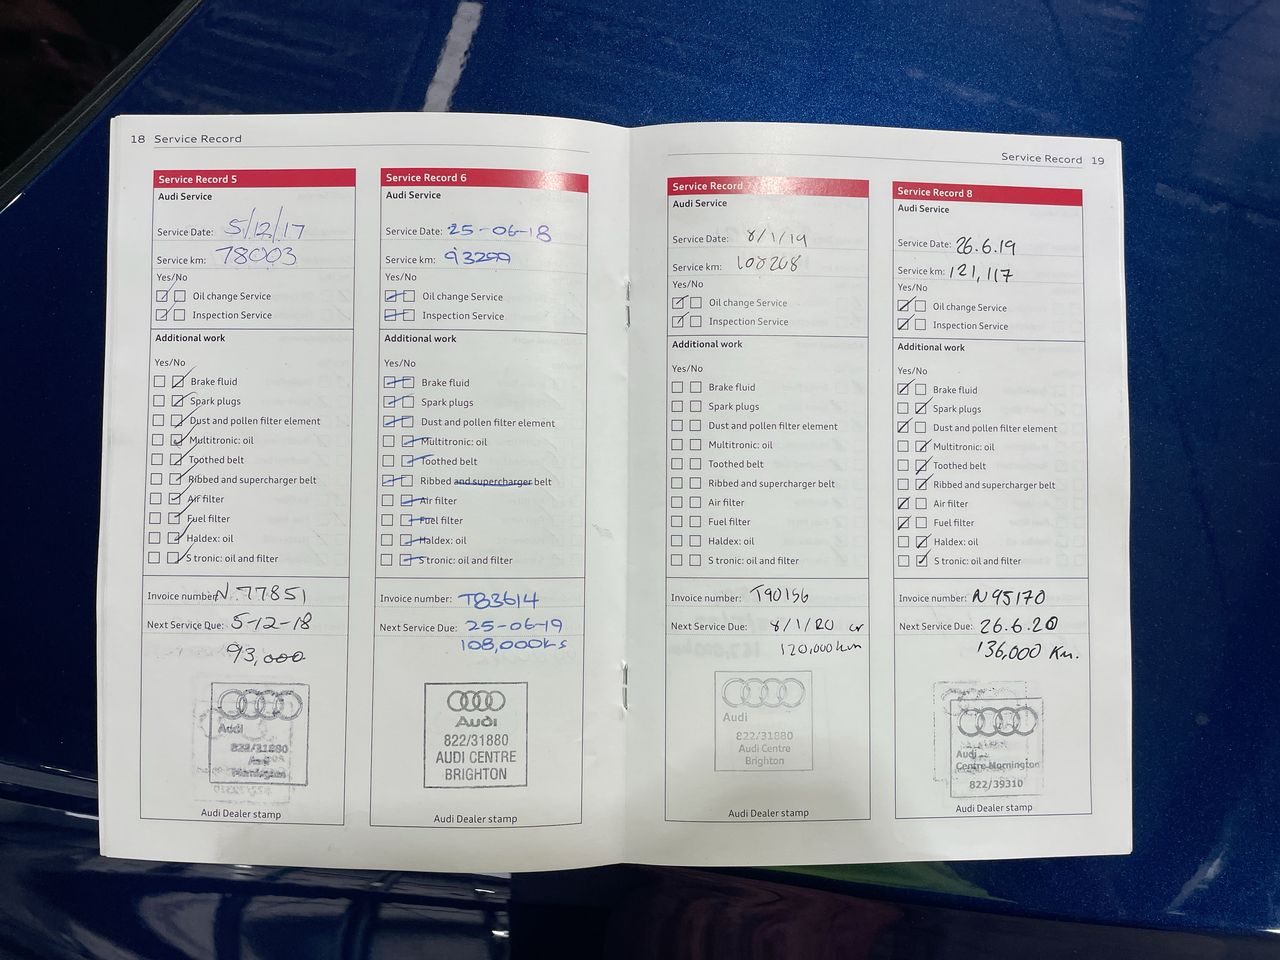 18 Service Record
Service Record 5
Audi Service
Service Date: 5/12/17
Service km: 78003
Yes/No
Oil change Service
Inspection Service
Additional work
Yes/No
Brake fluid
Spark plugs
Dust and pollen filter element
Multitronic: oil
Toothed belt
Ribbed and supercharger belt
Air filter
Fuel filter
Haldex: oil
S tronic: oil and filter
Invoice number: N 77851
Next Service Due: 5-12-18
93,000
Audi
822/31880
Audi Dealer stamp
Service Record 6
Audi Service
Service Date: 25-06-18
Service km: 93299
Yes/No
Oil change Service
Inspection Service
Additional work
Yes/No
Brake fluid
Spark plugs
Dust and pollen filter element
Multitronic: oil
Toothed belt
Ribbed and supercharger belt
Air filter
Fuel filter
Haldex: oil
S tronic: oil and filter
Invoice number: T83614
Next Service Due: 25-06-19
108,000Ks
Audi
822/31880
AUDI CENTRE
BRIGHTON
Audi Dealer stamp
Service Record 19
Service Record 7
Audi Service
Service Date: 8/1/19
Service km: 108268
Yes/No
Oil change Service
Inspection Service
Additional work
Yes/No
Brake fluid
Spark plugs
Dust and pollen filter element
Multitronic: oil
Toothed belt
Ribbed and supercharger belt
Air filter
Fuel filter
Haldex: oil
S tronic: oil and filter
Invoice number: T90156
Next Service Due: 8/1/20 or
120,000km
Audi
822/31880
Audi Centre
Brighton
Audi Dealer stamp
Service Record 8
Audi Service
Service Date: 26.6.19
Service km: 121,117
Yes/No
Oil change Service
Inspection Service
Additional work
Yes/No
Brake fluid
Spark plugs
Dust and pollen filter element
Multitronic: oil
Toothed belt
Ribbed and supercharger belt
Air filter
Fuel filter
Haldex: oil
S tronic: oil and filter
Invoice number: N95170
Next Service Due: 26.6.20
136,000 Km.
Audi
Centre Mornington
822/39310
Audi Dealer stamp